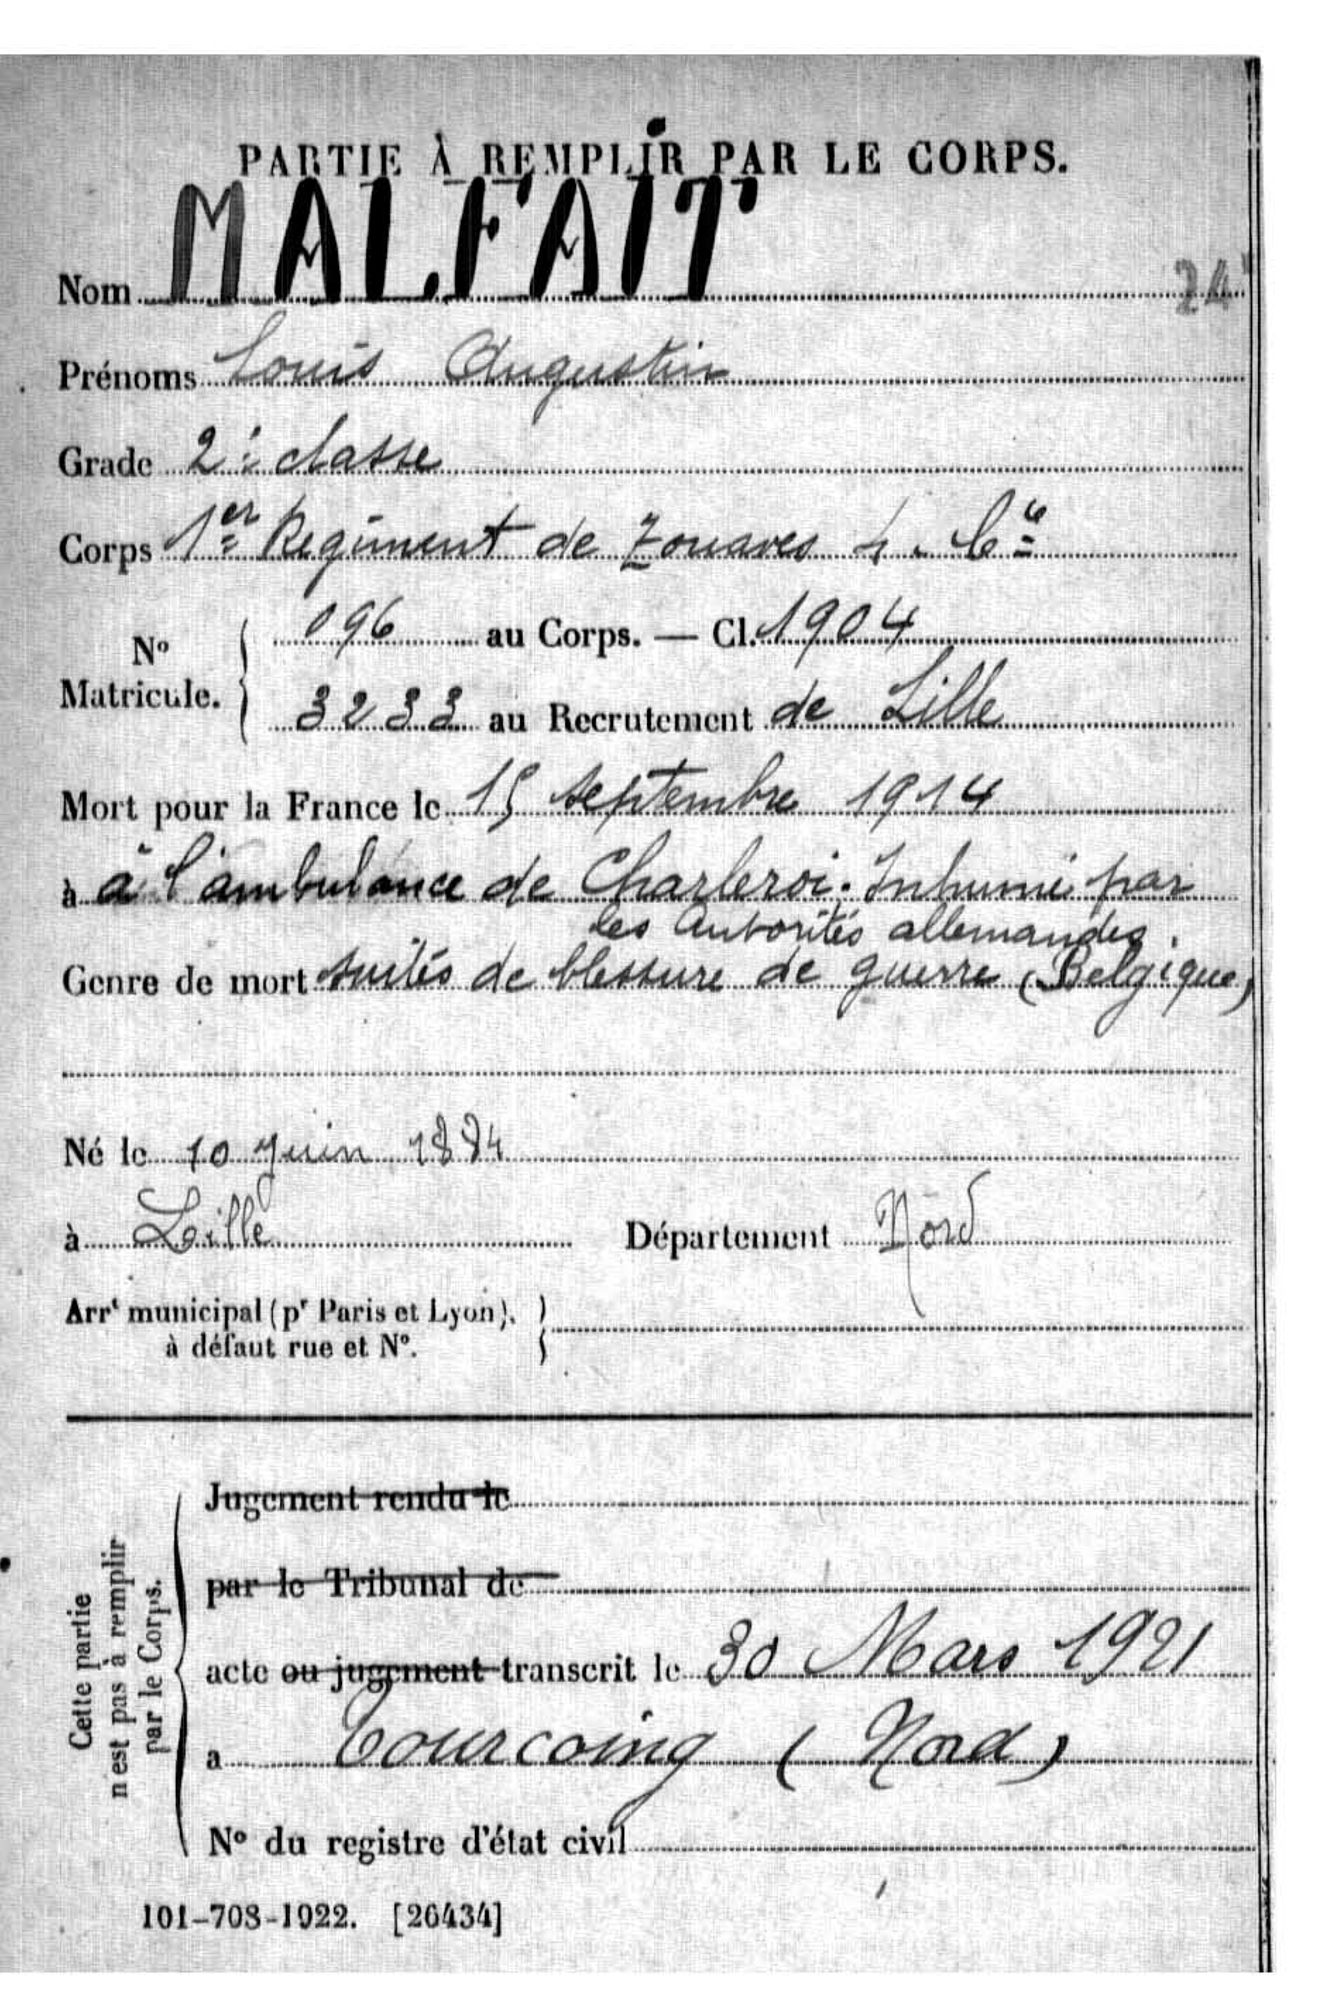 PARTIE À REMPLIR PAR LE CORPS.
Nom MALFAIT
24
Prénoms Louis Augustin
Grade 2e classe
Corps 1er Régiment de Zouaves 4. Cie
No Matricule. { 096 au Corps. — Cl. 1904
3233 au Recrutement de Lille
Mort pour la France le 15 septembre 1914
à à l'ambulance de Charleroi. Inhumé par
les autorités allemandes.
Genre de mort suites de blessure de guerre (Belgique)
Né le 10 Juin 1884
à Lille Département Nord
Arrt municipal (pr Paris et Lyon),
à défaut rue et No.
Cette partie
n'est pas à remplir
par le Corps.
Jugement rendu le
par le Tribunal de
acte ou jugement transcrit le 30 Mars 1921
a Tourcoing (Nord)
No du registre d'état civil
101-708-1922. [26434]